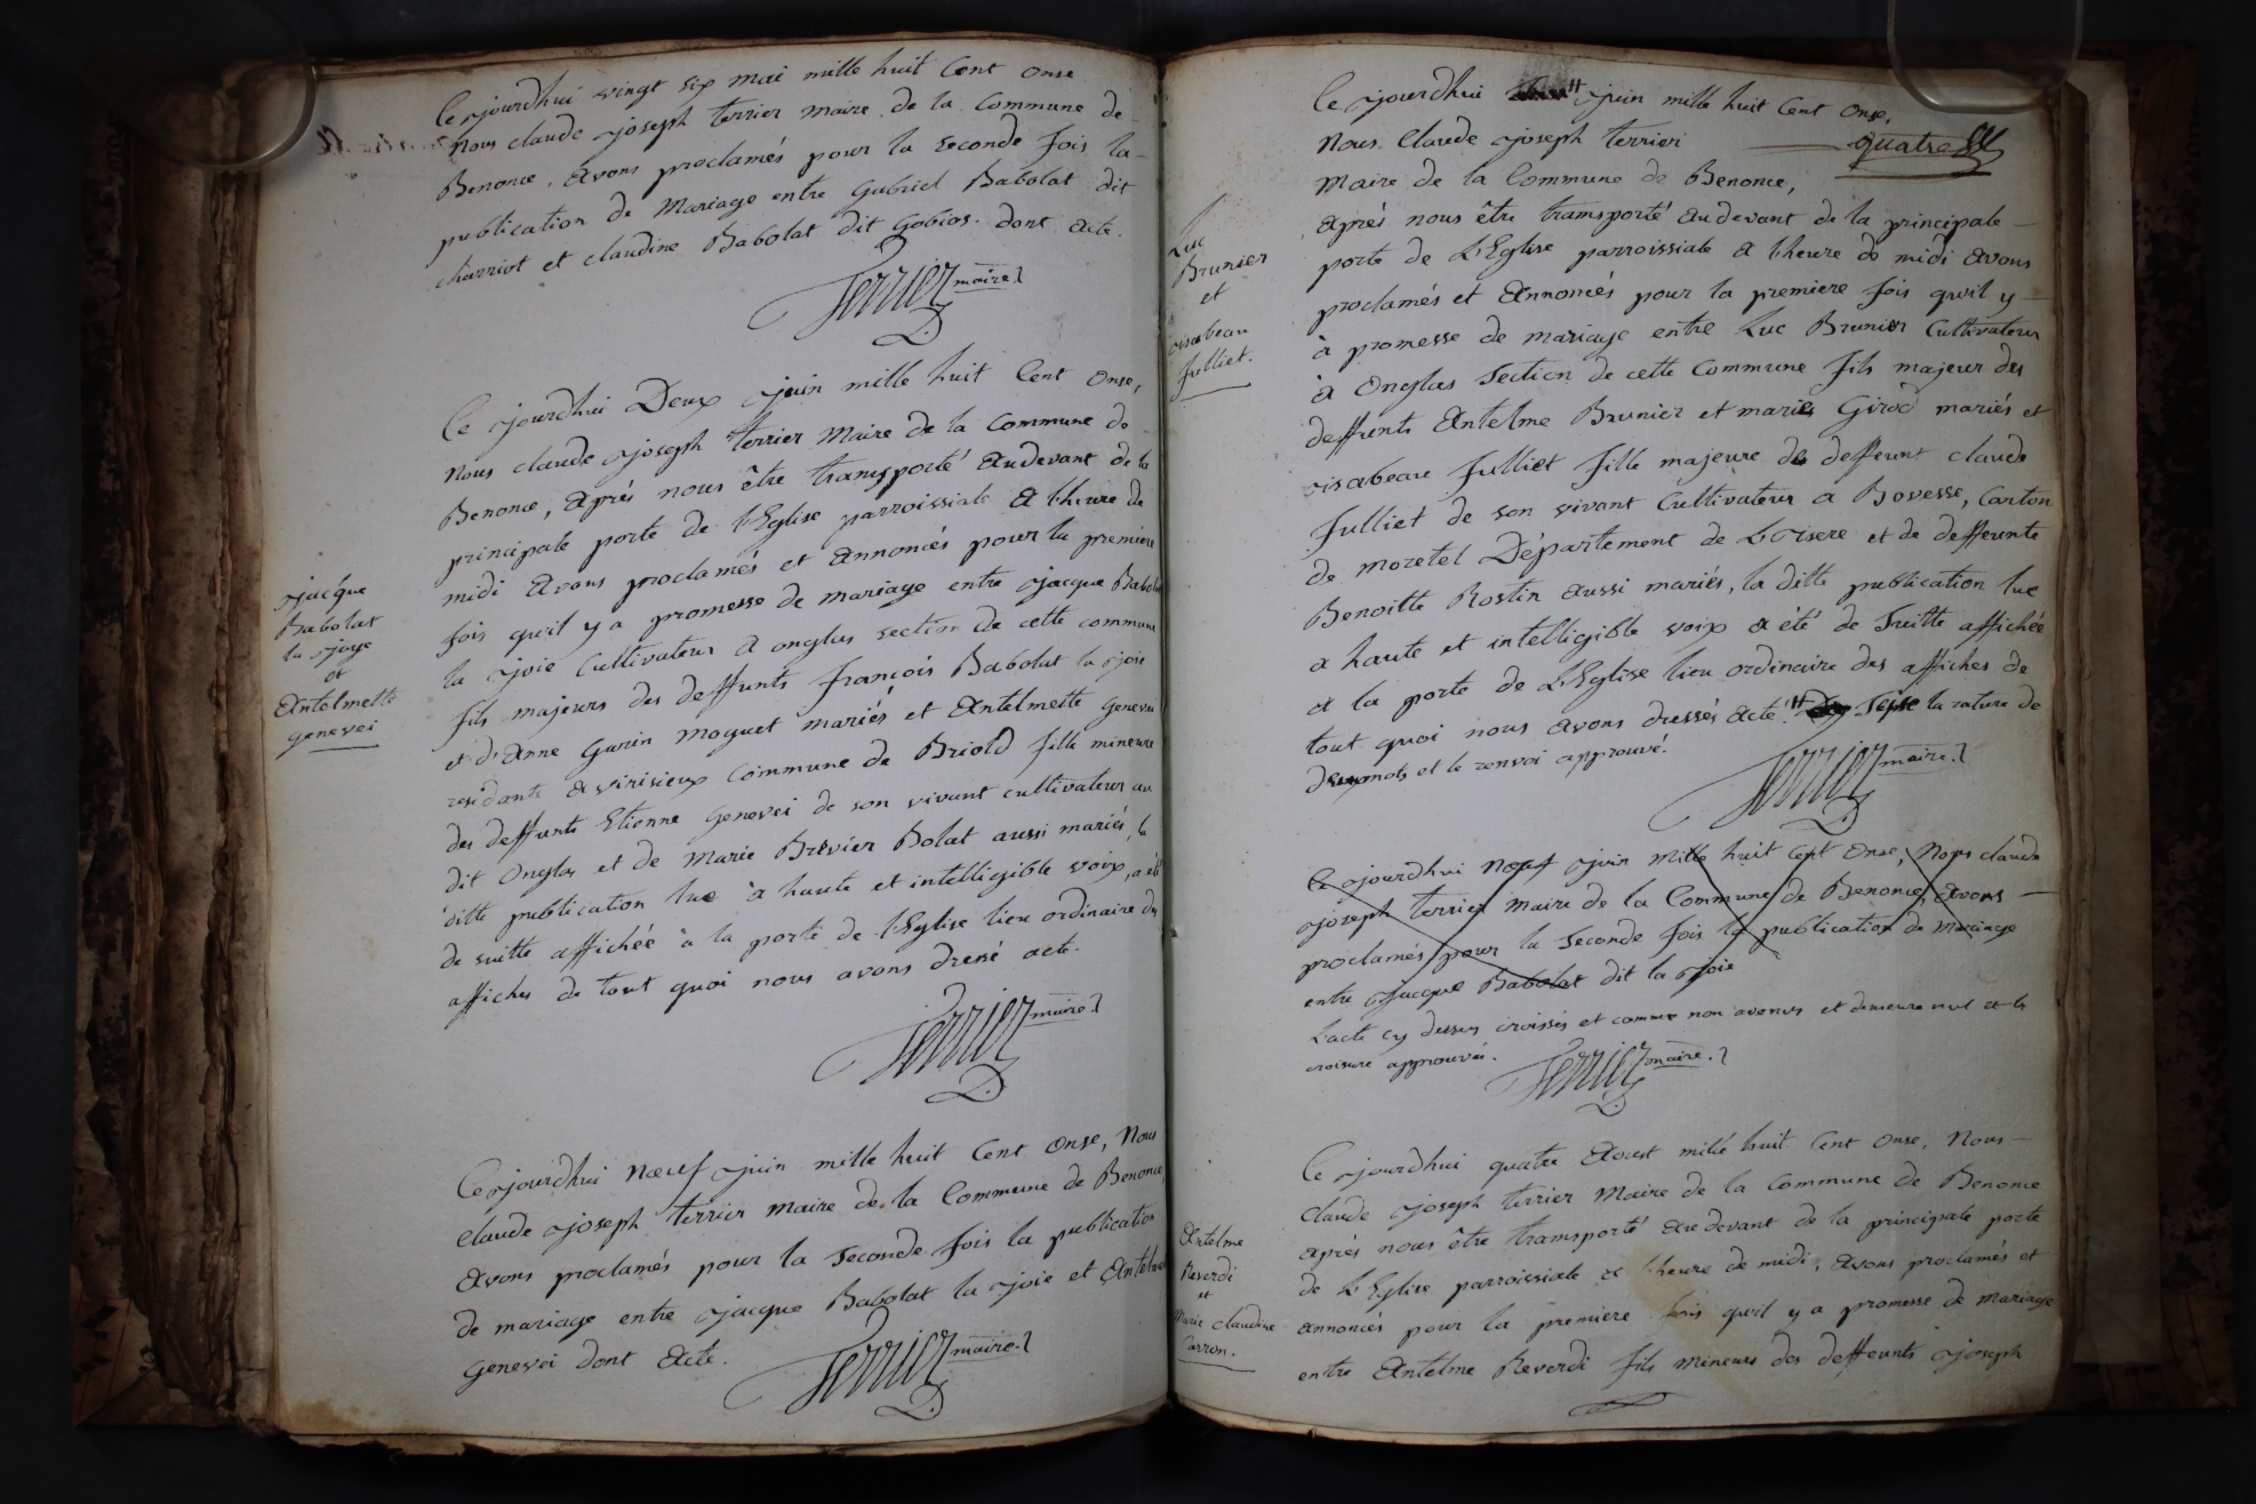 Ce jourdhui vingt six mai mille huit Cent onse
nous claude joseph terrier maire de la Commune de
Benonce, avons proclamés pour la seconde fois la
publication de Mariage entre gabriel Babolat dit
charriot et claudine Babolat dit Gobios. dont acte.
Terrier maire
Jacque
Babolat
la joye
et
Antelmette
genevei
Ce jourdhui Deux juin mille huit Cent onse,
nous claude joseph terrier Maire de la Commune de
Benonce, après nous être transporté audevant de la
principale porte de l'Eglise parroissiale a lheure de
midi avons proclamés et annoncés pour la premiere
fois qu'il y a promesse de mariage entre jacque Babolat
la joie Cultivateur a onglas section de cette commune
fils majeurs des deffunts françois Babolat la joie
et d'anne Garin moguet mariés et Antelmette genevei
residante a virisieux Commune de Briold fille mineure
des deffunts Etienne genevei de son vivant cultivateur au
dit Onglas et de Marie Brévier Bolat aussi mariés, la
ditte publication lue à haute et intelligible voix, a été
de suitte affichée à la porte de l'Eglise lieu ordinaire des
affiches de tout quoi nous avons dressé acte.
Terrier maire
Ce jourdhui nœuf juin mille huit Cent onse, Nous
claude joseph terrier maire de la Commune de Benonce
avons proclamés pour la seconde fois la publication
de mariage entre jacque Babolat la joie et Antelmette
genevei dont acte.
Terrier maire
Ce jourdhui # juin mille huit Cent onse,
Nous Claude joseph terrier quatre
Maire de la Commune de Benonce,
Luc
Brunier
et
isabeau
Julliet.
après nous être transporté audevant de la principale
porte de L'Eglise parroissiale a lheure de midi avons
proclamés et annoncés pour la premiere fois qu'il y
à promesse de mariage entre Luc Brunier Cultivateur
à Onglas Section de cette Commune fils majeur des
deffunts Antelme Brunier et marie Girod mariés et
isabeau Julliet fille majeure de deffeunt claude
Julliet de son vivant Cultivateur a Bovesse, Canton
de moretel Département de L'Isere et de deffeunte
Benoitte Rostin aussi mariés, la ditte publication lue
a haute et intelligible voix a été de Suitte affichée
a la porte de L'Eglise lieu ordinaire des affiches de
tout quoi nous avons dressés acte. # la rature de
deux mots et le renvoi approuvé.
Terrier maire
Ce jourdhui nœuf juin mille huit cent onse, Nous claude
joseph terrier maire de la Commune de Benonce, avons
proclamés pour la Seconde fois la publication de mariage
entre Jacque Babolat dit la joie
L'acte cy dessus croissés et comme non avenus et demeure nul et la
croisure approuvée.
Terrier maire
Ce jourdhui quatre aoust mille huit Cent onse, Nous
claude joseph terrier Maire de la Commune de Benonce
Antelme
Reverdi
et
Marie claudine
Carron.
après nous être transporté audevant de la principale porte
de L'Eglise parroissiale a lheure de midi, avons proclamés et
annoncés pour la premiere fois qu'il y a promesse de mariage
entre Antelme Reverdi fils mineurs des deffeunts joseph